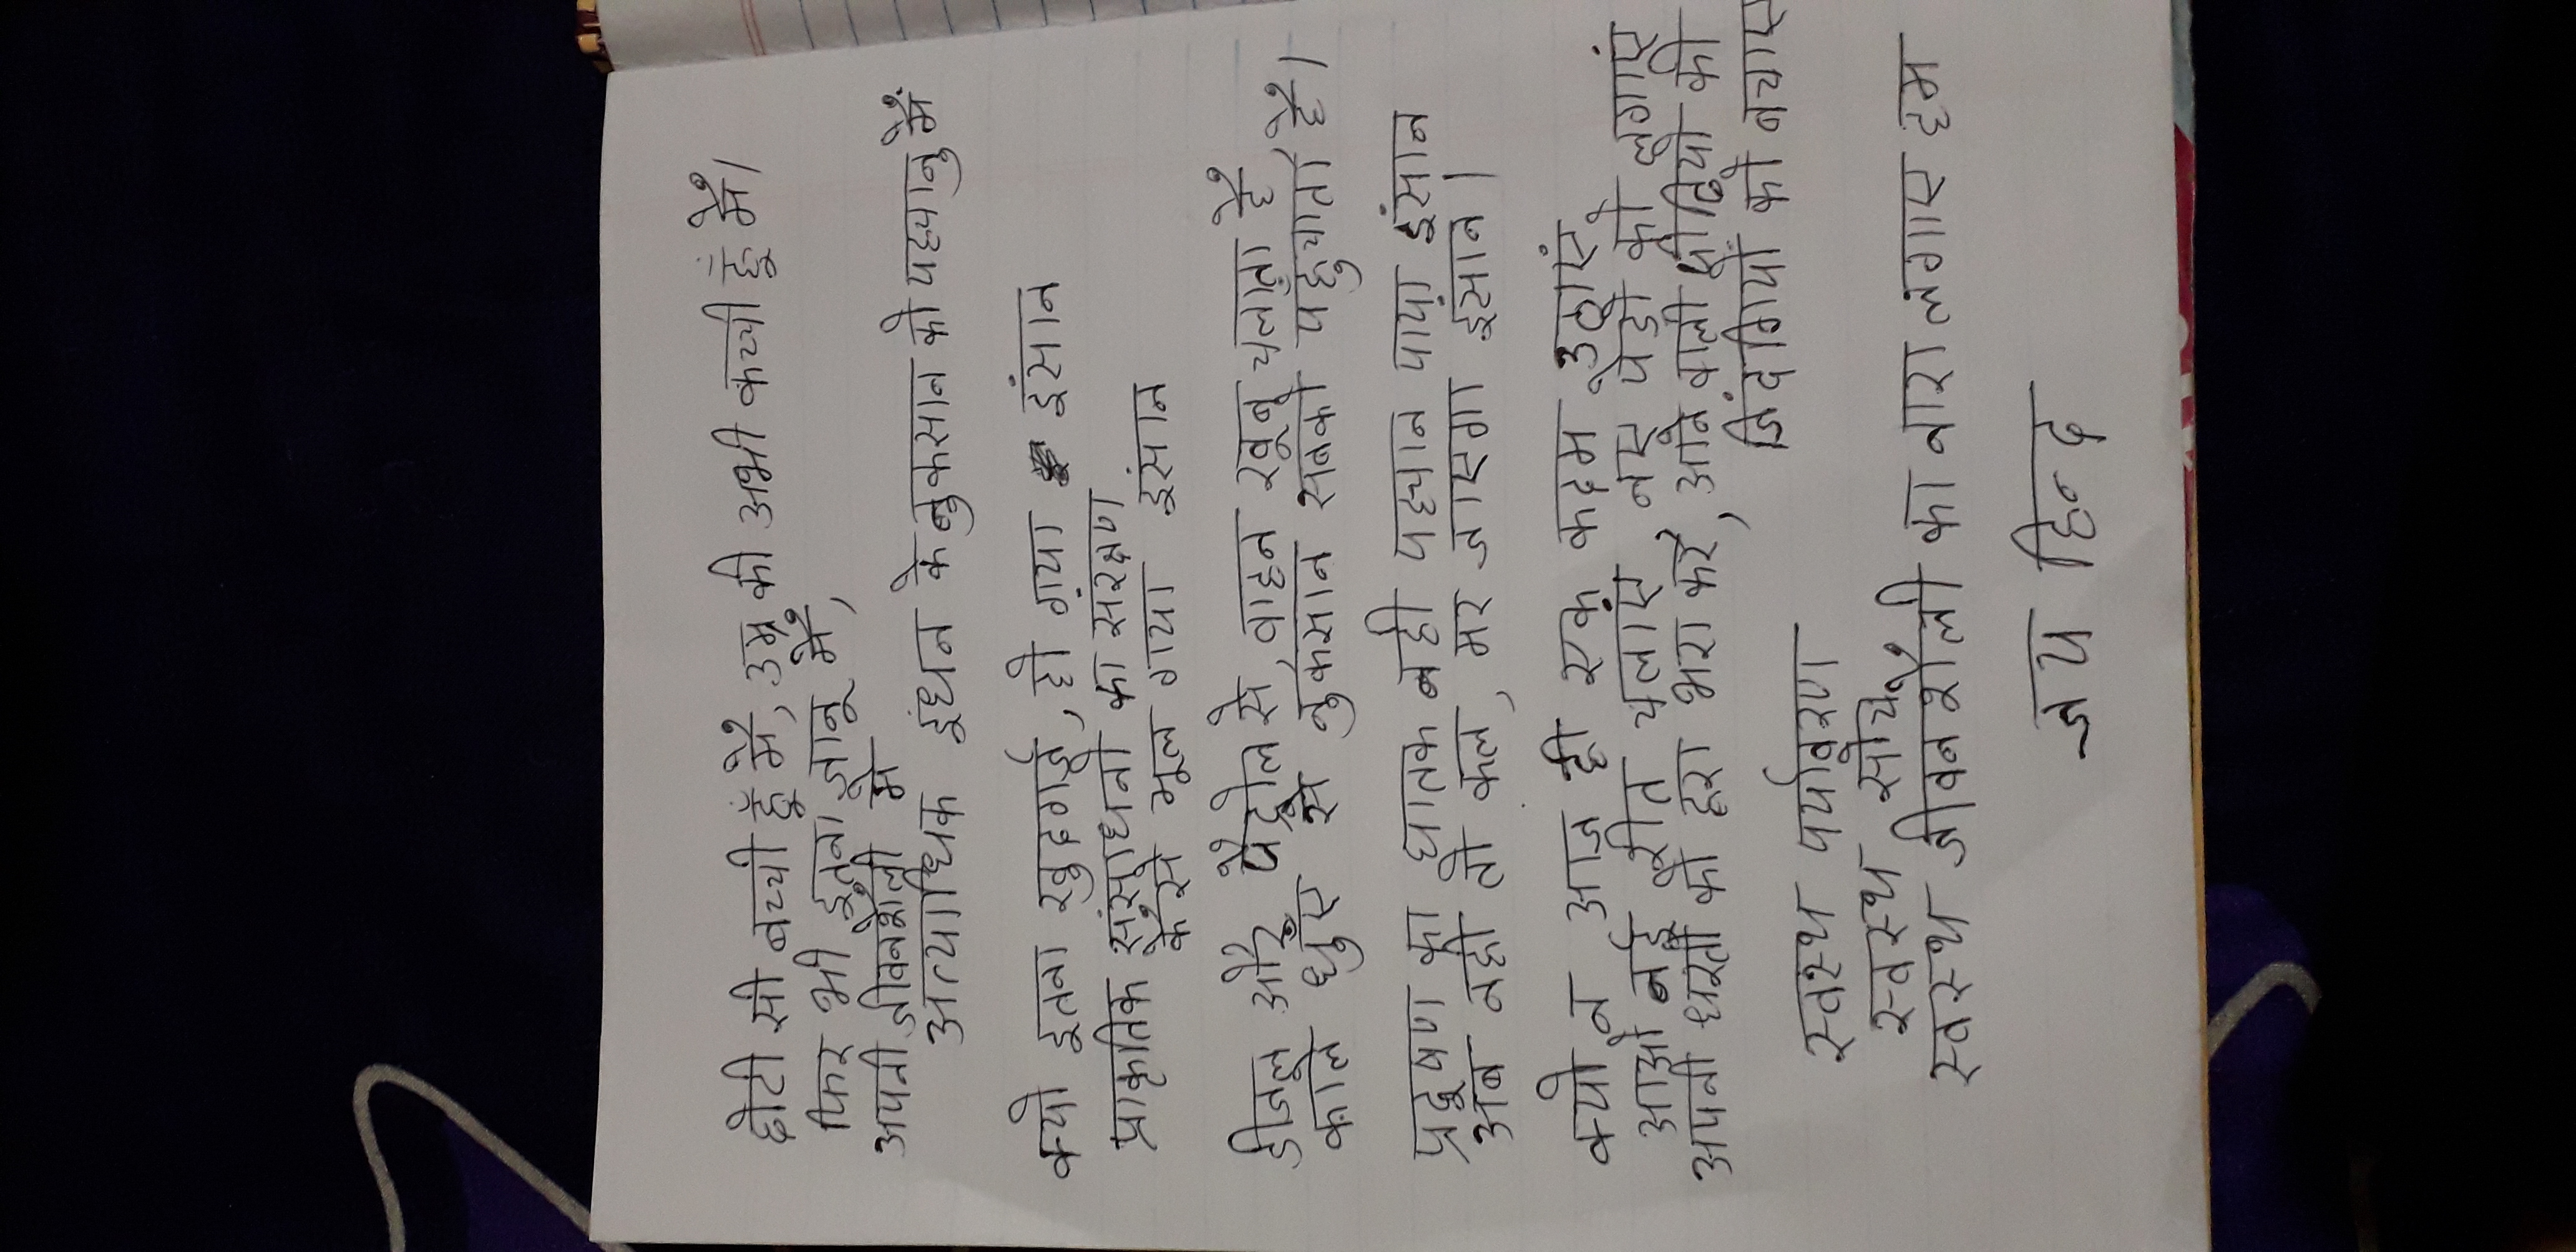 छोटी सी बच्ची हूँ मैं, उम्र की अभी कच्ची हूँ मैं।
फिर भी इतना जानू मैं,
अपनी जीवनशैली मे
अत्याधिक इंधन के नुकसान को पहचानु मैं
क्यो इतना खुदगर्ज, हो गया इंसान
प्राकृतिक संसाधनो का संरक्षण
कैसे भूल गया इंसान
डीजल और पेट्रोल से, वाहन खूब चलाता है
काले धुएं से नुकसान सबको पहुचाता है।
प्रदूषण का घातक नही पहचान पाया इंसान
अब नही तो कल, मर जाएगा इंसान।
क्यो न आज ही एक कदम उठाएं,
आओ नई रीत चलाएं नए पेड़ो को लगाएं
अपनी धरती को हरा भरा करे, आने वाली पीढियो की
जिंदगियों को बचाएं
स्वस्थ पर्यावरण
स्वस्थ सोच
स्वस्थ जीवनशैली का नारा लगाए हम
जय हिन्द